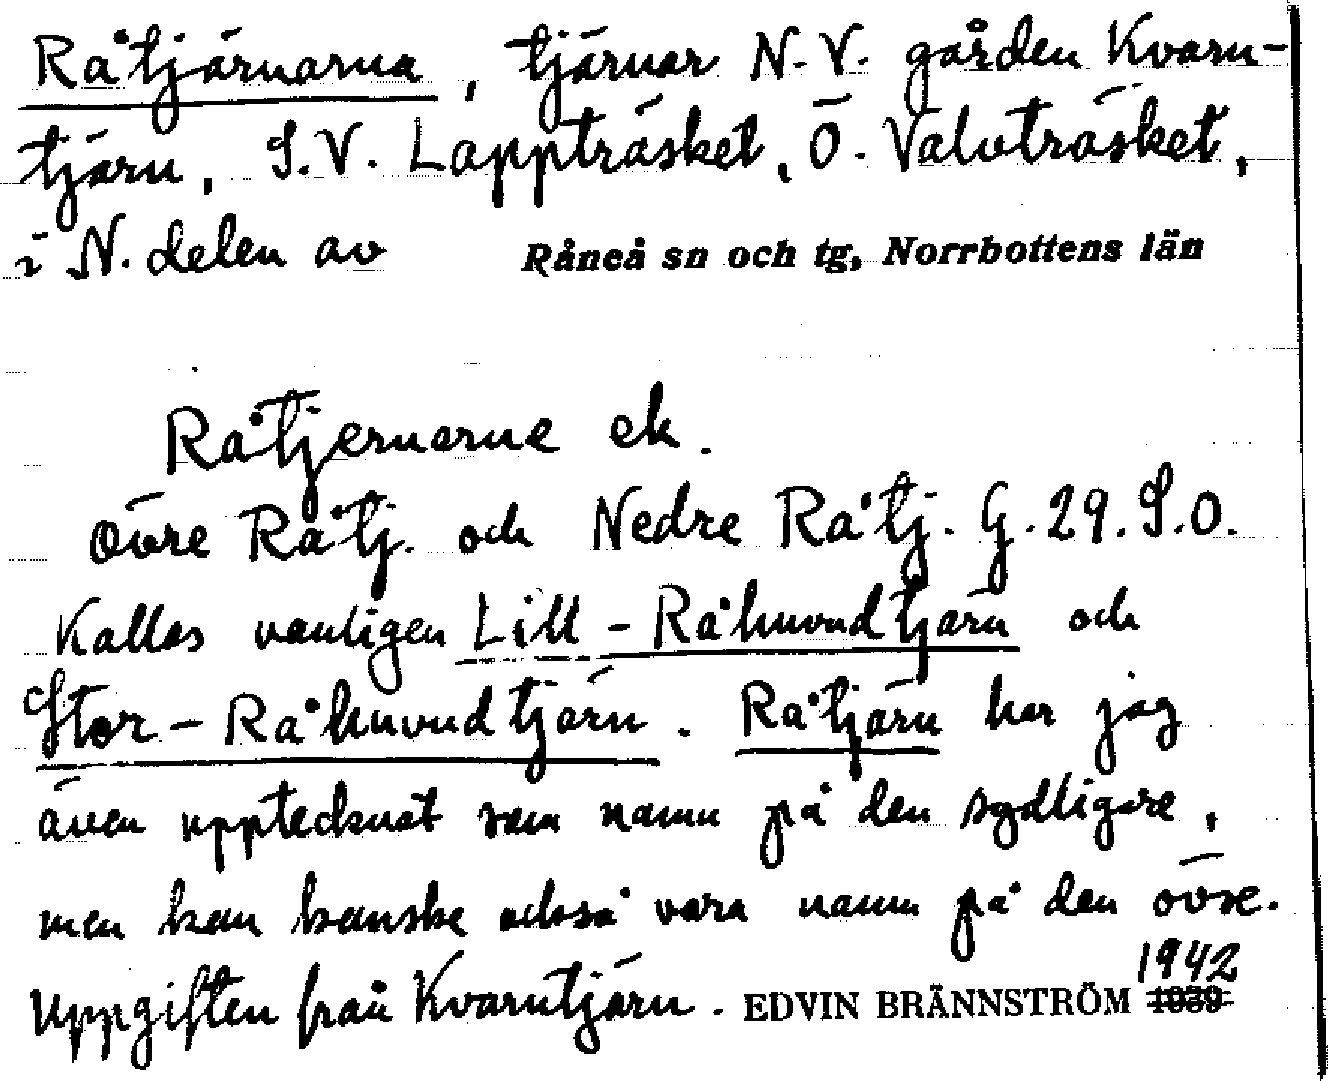 Råtjärnarna, tjärnar N.V. gården Kvarn-
tjärn, S.V. Lappträsket, Ö. Valvträsket,
i N. delen av Råneå sn och tg, Norrbottens län
Råtjernarne ek.
Övre Råtj. och Nedre Råtj. G. 29. S.O.
Kallas vanligen Lill-Råhuvudtjärn och
Stor-Råhuvudtjärn. Råtjärn har jag
även upptecknat som namn på den sydligare,
men kan kanske också vara namn på den övre.
Uppgiften från Kvarntjärn. EDVIN BRÄNNSTRÖM 1942 1939